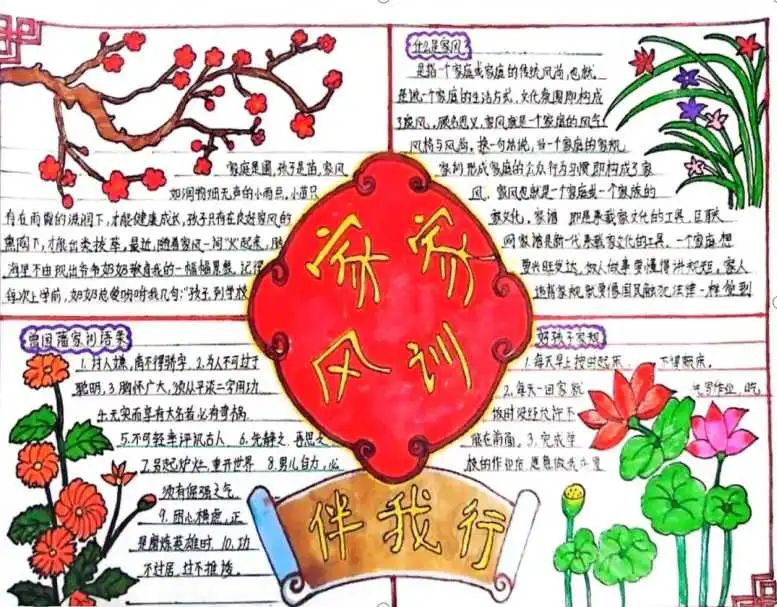 家家
风训
伴我行
家庭是圃,孩子是苗,家风
如润物细无声的小雨点,小苗只
有在雨露的滋润下,才能健康成长,孩子只有在良好家风的
熏陶下,才能出类拔萃。最近,随着家风一词“火”起来,脑
海里不由现出爷爷奶奶教育我的一幅幅景象,记得
每次上学前,奶奶总爱嘱咐我几句:“孩子,到学校
什么是家风?
是指一个家庭或家族的传统风尚,也就
是说一个家庭的生活方式、文化氛围即构成
了家风,顾名思义,家风就是一个家庭的风气、
风格与风尚。换一句话说,当一个家庭的家规、
家训形成家庭的公众行为习惯即构成了家
风。家风也就是一个家庭或一个家族的
家文化。家谱 即是承载家文化的工具,互联
网家谱是新一代承载家文化的工具。一个家庭想
要兴旺发达,做人做事要懂得讲规矩,家人
违背家规就要像国民触犯法律一样受到
曾国藩家训语录
1.对人嫌,尚不得骄字 2.为人不可过于
聪明,3.胸怀广大,须从平淡二字用功
4.无实而享有大名者必有奇祸
5.不可轻率评讥古人 6.先静之,再思之,
7.另起炉灶,重开世界 8.男儿自力,必
须有倔强之气
9.困心横虑,正
是磨炼英雄时 10.功
不过居,过不推诿
好孩子家规
1.每天早上按时起床 不得赖床,
2.每天一回家就 先写作业,吃
饭时没经允许不
能在前面,3.完成学
校的作业后